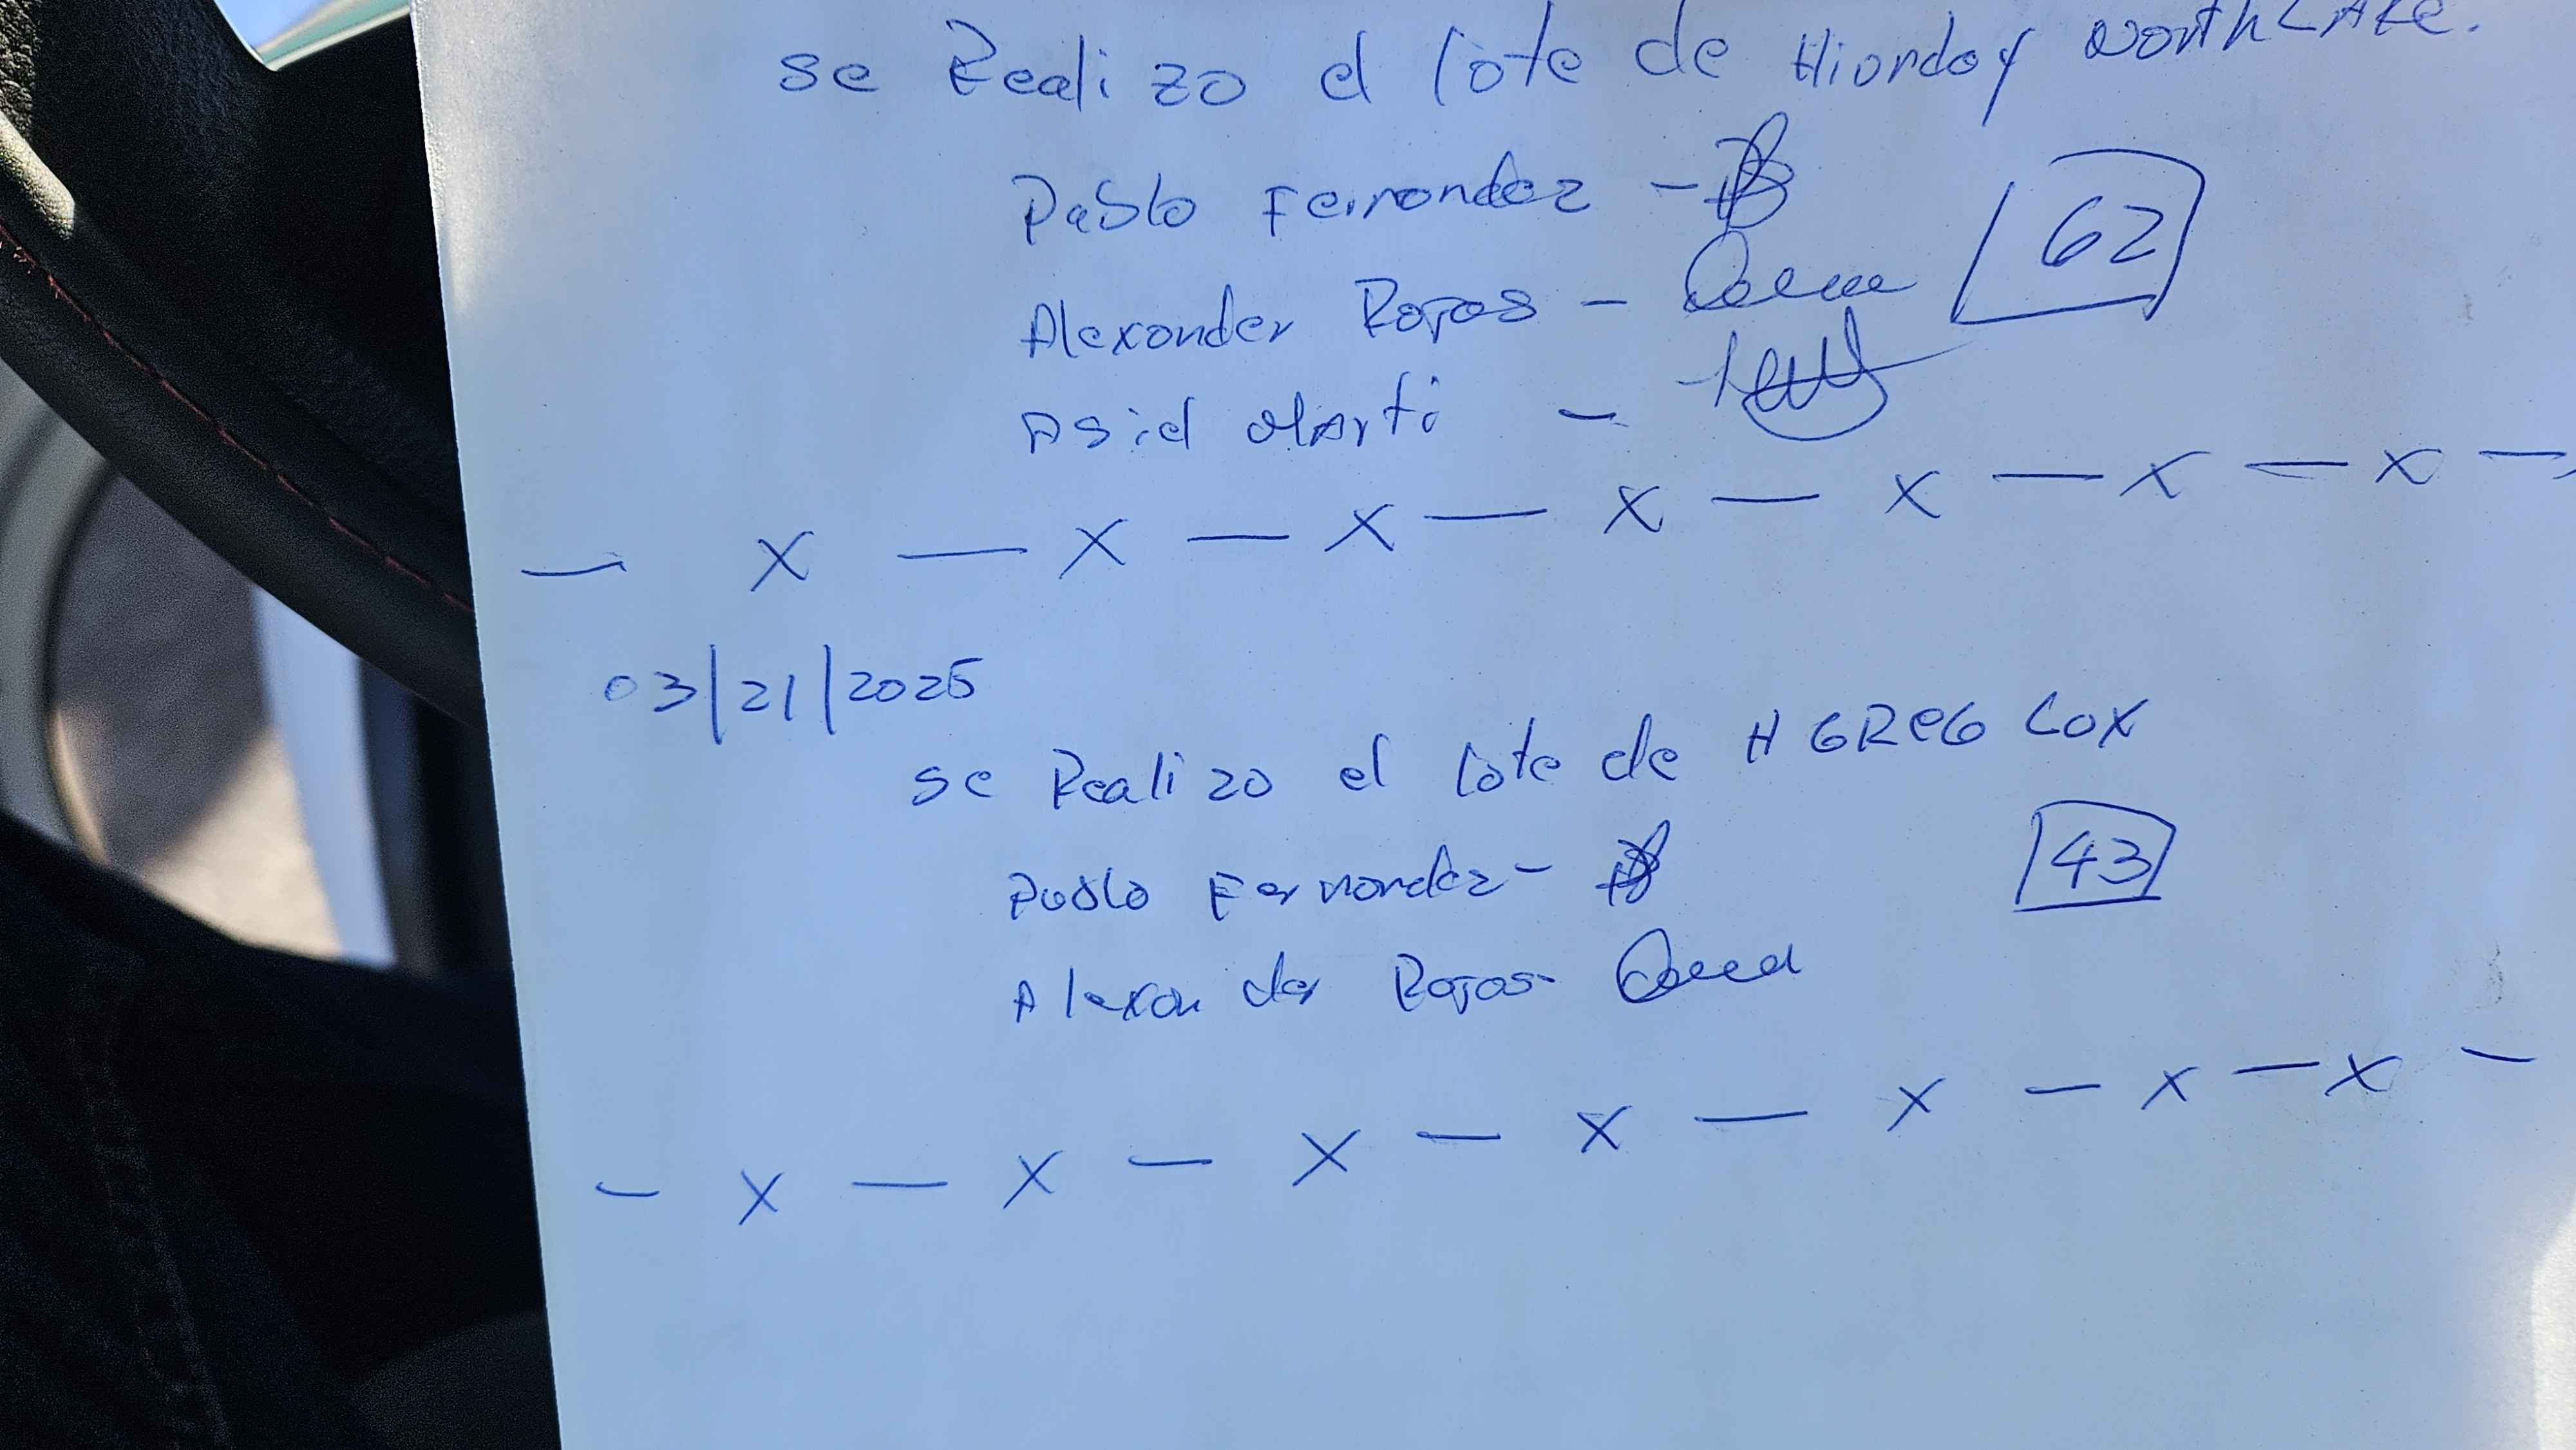 se Realizo el lote de Hiunday North LAKe.
Pablo Fernandez -
62
Alexander Rojas -
Asiel Marti -
— X — X — X — X — X — X — X —
03/21/2025
se Realizo el lote de H GReG Cox
43
Pablo Fernandez -
Alexander Rojas -
- X — X — X — X — X — X — X -